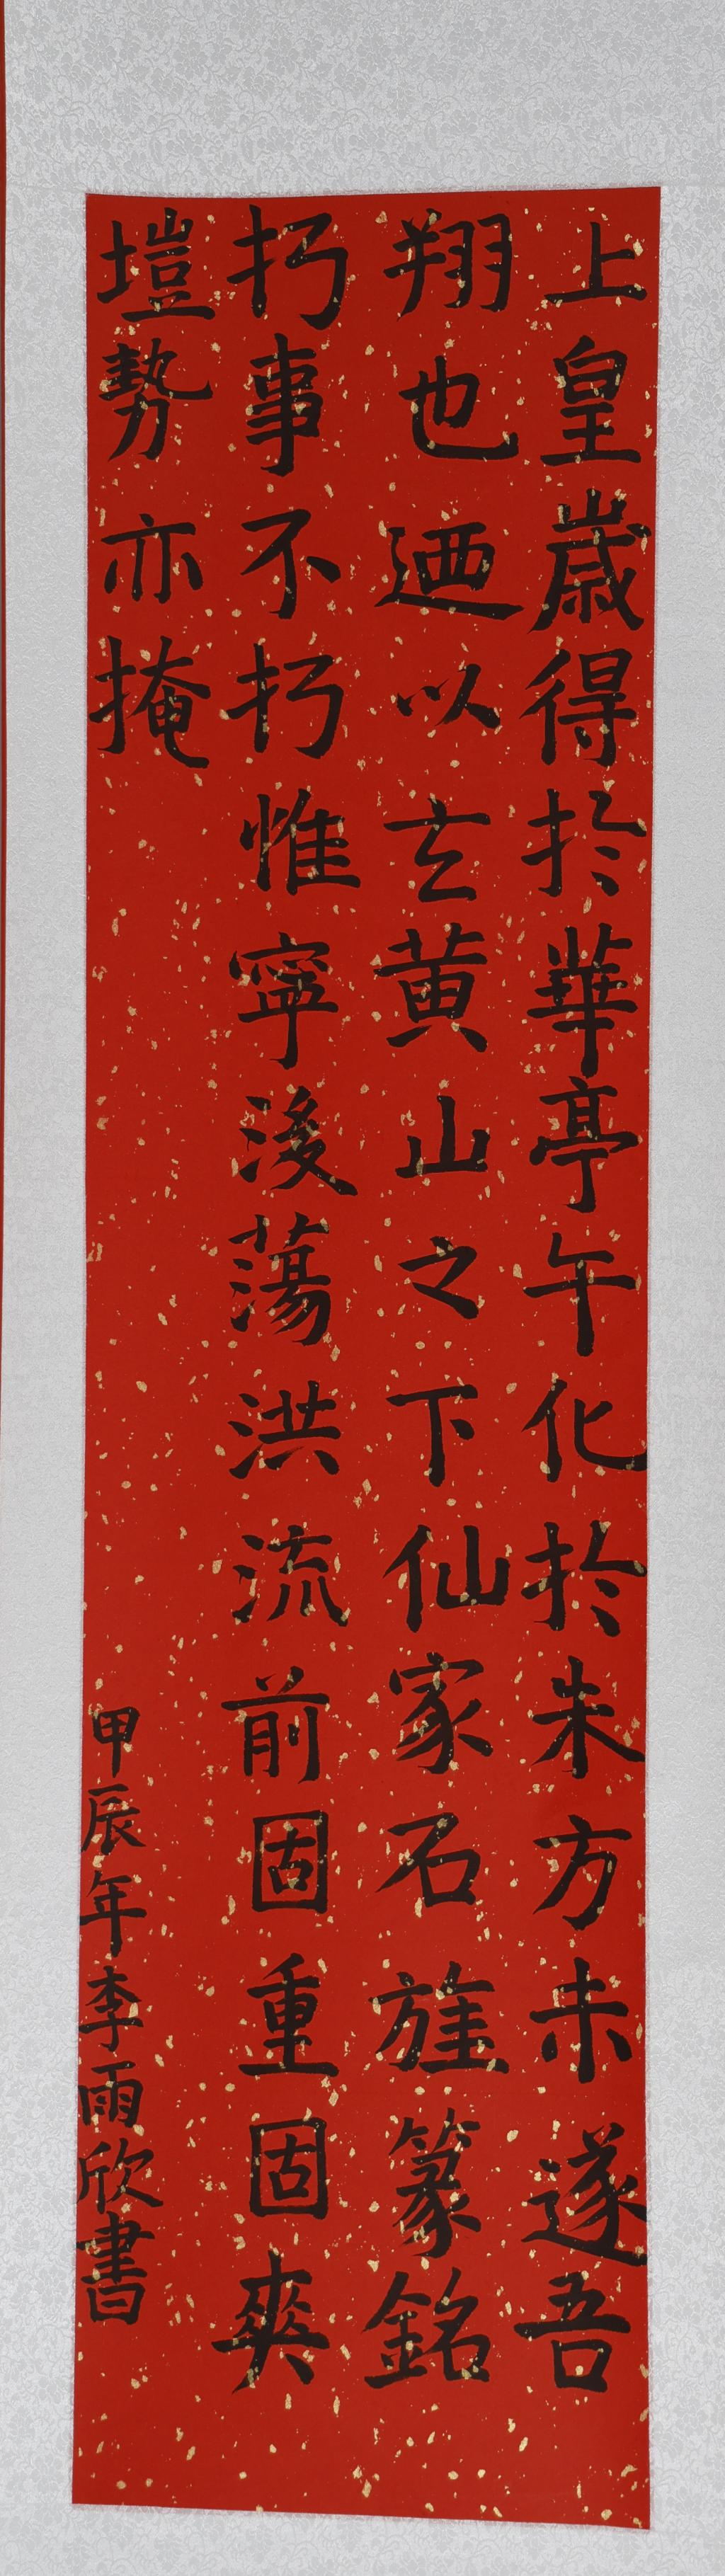 上皇歲得於華亭午化於朱方未遂吾
翔也迺以玄黄山之下仙家石旌篆銘
朽事不朽惟寧後蕩洪流前固重固爽
塏勢亦掩
甲辰年李雨欣書